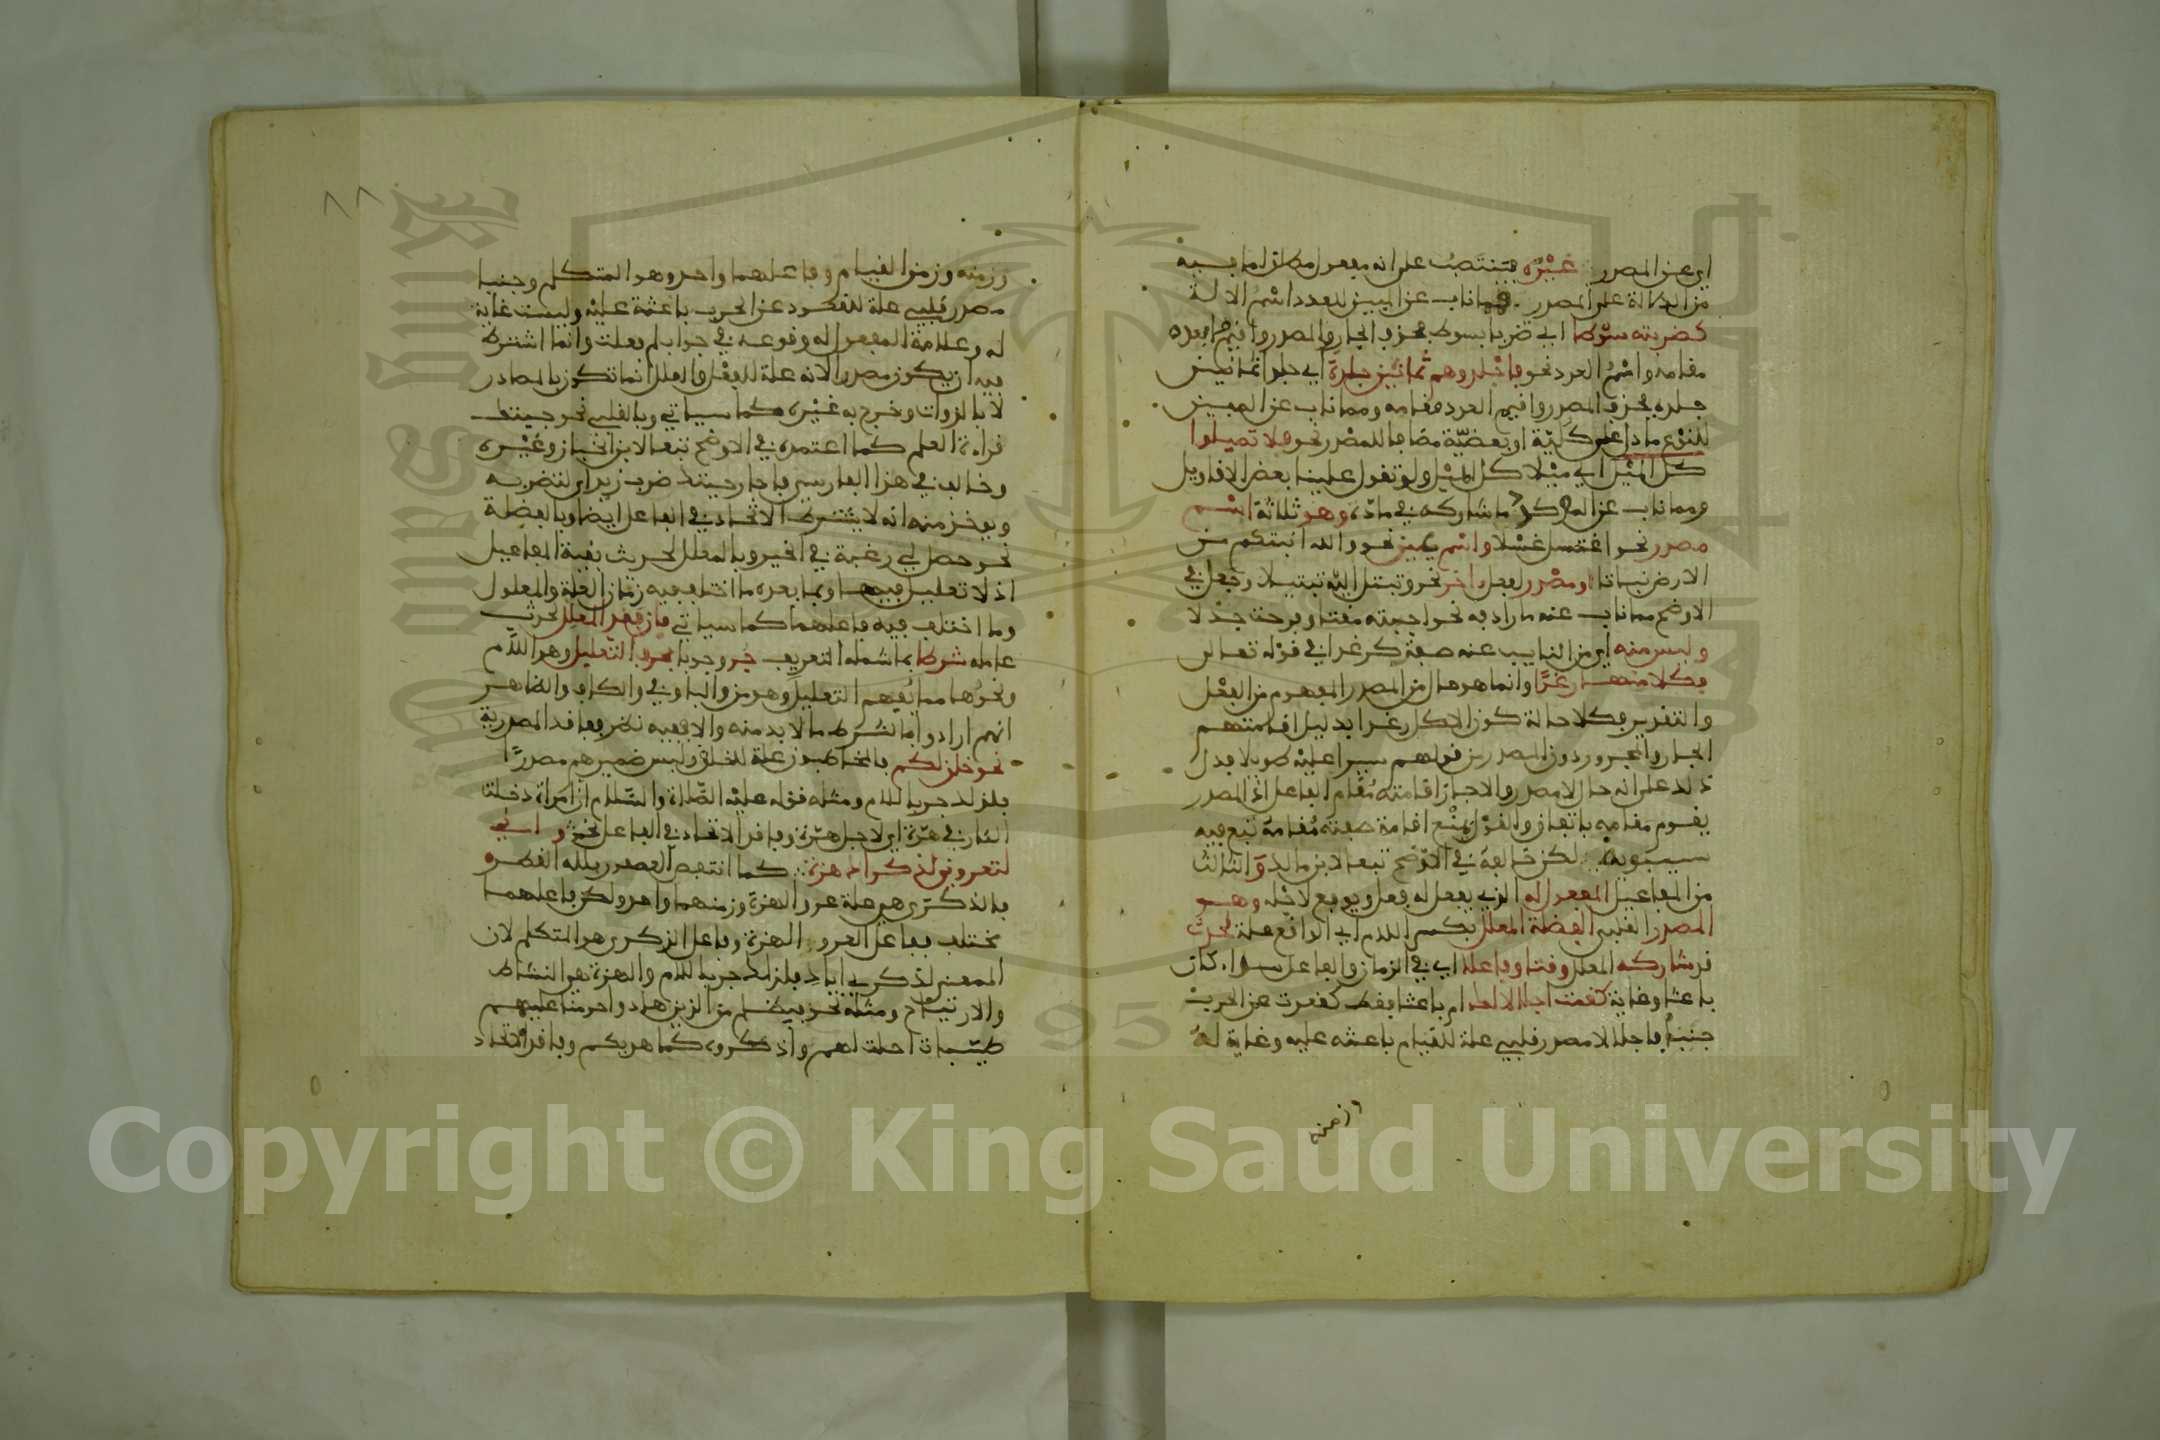 اي عن المصدر غيره فينتصب على انه مفعول مطلق لما فيه
من الدلالة على المصدر فمما ناب عن المبين للعدد اسم الالة
كضربته سوطا اي ضربا بسوط فحذف الجار والمصدر واقيم ما بعده
مقامه واسم العدد نحو فاجلدوهم ثمانين جلدة اي جلدا ثمانين
جلدة فحذف المصدر واقيم العدد مقامه ومما ناب عن المبين
للنوع ما دل على كلية او بعضية مضافا للمصدر نحو فلا تميلوا
كل الميل اي ميلا كل الميل ولو تقول علينا بعض الاقاويل
ومما ناب عن المؤكد ما شاركه في مادته وهو ثلاثة اسم
مصدر نحو اغتسل غسلا واسم عين نحو والله انبتكم من
الارض نباتا او مصدر لفعل اخر نحو وتبتل اليه تبتيلا وجعل في
الاوضح مما ناب عنه مارادفه نحو احببته مقتا وفرحت جذلا
وليس منه اي من النايب عنه صفة كرغدا في قوله تعالى
فكلا منها رغدا وانما هو حال من المصدر المفهوم من الفعل
والتقدير فكلا حالة كون الاكل رغدا بدليل اقامتهم
الجار والمجرور دون المصدر في قولهم سير عليه طويلا فدل
ذلك على انه حال لا مصدر والا جاز اقامته مقام الفاعل اذ المصدر
يقوم مقامه باتفاق والقول بمنع اقامة صفته مقامه تبع فيه
سيبويه لكن خالفه في الاوضح تبعا لابن مالك والثالث
من المفاعيل المفعول له الذي يفعل له فعل ويوقع لاجله وهو
المصدر القلبي الفضلة المعلل بكسر اللام اي الواقع علة لحدث
قد شاركه المعلل وقتا وفاعلا اي في الزمان والفاعل سواء كان
باعثا وغاية كقمت اجلالا لك ام باعثا فقط كقعدت عن الحرب
جبنا فاجلالا مصدر قلبي علة للقيام باعثه عليه وغاية له
وزمنه
وزمنه وزمن القيام وفاعلهما واحد وهو المتكلم وجبنا
مصدر قلبي علة للقعود عن الحرب باعثة عليه وليست غاية
له وعلامة المفعول له وقوعه في جواب لم فعلت وانما اشترط
فيه ان يكون مصدرا لانه علة للفعل والعلل انما تكون بالمصادر
لا بالذوات وخرج به غيره كما سياتي وبالقلبي نحو جيتك
قراءة العلم كما اعتمده في الاوضح تبعا لابن الخباز وغيره
وخالف في هذا الفارسي فاجاز جيتك ضرب زيد اي لتضربه
ويوخذ منه انه لا يشترط الاتحاد في الفاعل ايضا وبالفضلة
نحو حصل لي رغبة في الخير وبالمعلل لحدث بقية المفاعيل
اذ لا تعليل فيها وبما بعده ما اختلف فيه زمان العلة والمعلول
وما اختلف فيه فاعلهما كما سياتي فان فقد المعلل لحدث
عامله شرطا مما شمله التعريف جر وجوبا بحرف التعليل وهو اللام
ونحوها مما يفهم التعليل وهو من والباء وفي والكاف والظاهر
انهم ارادوا بالشرط ما لا بد منه والا ففيه نظر ففاقد المصدرية
نحو خلق لكم فالمخاطبون علة للخلق وليس ضميرهم مصدرا
فلذلك جر باللام ومثله قوله عليه الصلاة والسلام ان امراة دخلت
النار في هرة اي لاجل هرة وفاقد الاتحاد في الفاعل نحو واني
لتعروني لذكراك هزة كما انتفض العصفور بلله القطر
فالذكرى هي علة عرو الهزة وزمنهما واحد ولكن فاعلهما
مختلف ففاعل العرو الهزة وفاعل الذكرى هو المتكلم لان
المعنى لذكري اياك فلذلك جر باللام والهزة هي النشاط
والارتياح ومثله نحو فبظلم من الذين هادوا حرمنا عليهم
طيبات احلت لهم واذكروه كما هديكم وفاقد الاتحاد
Copyright © King Saud University